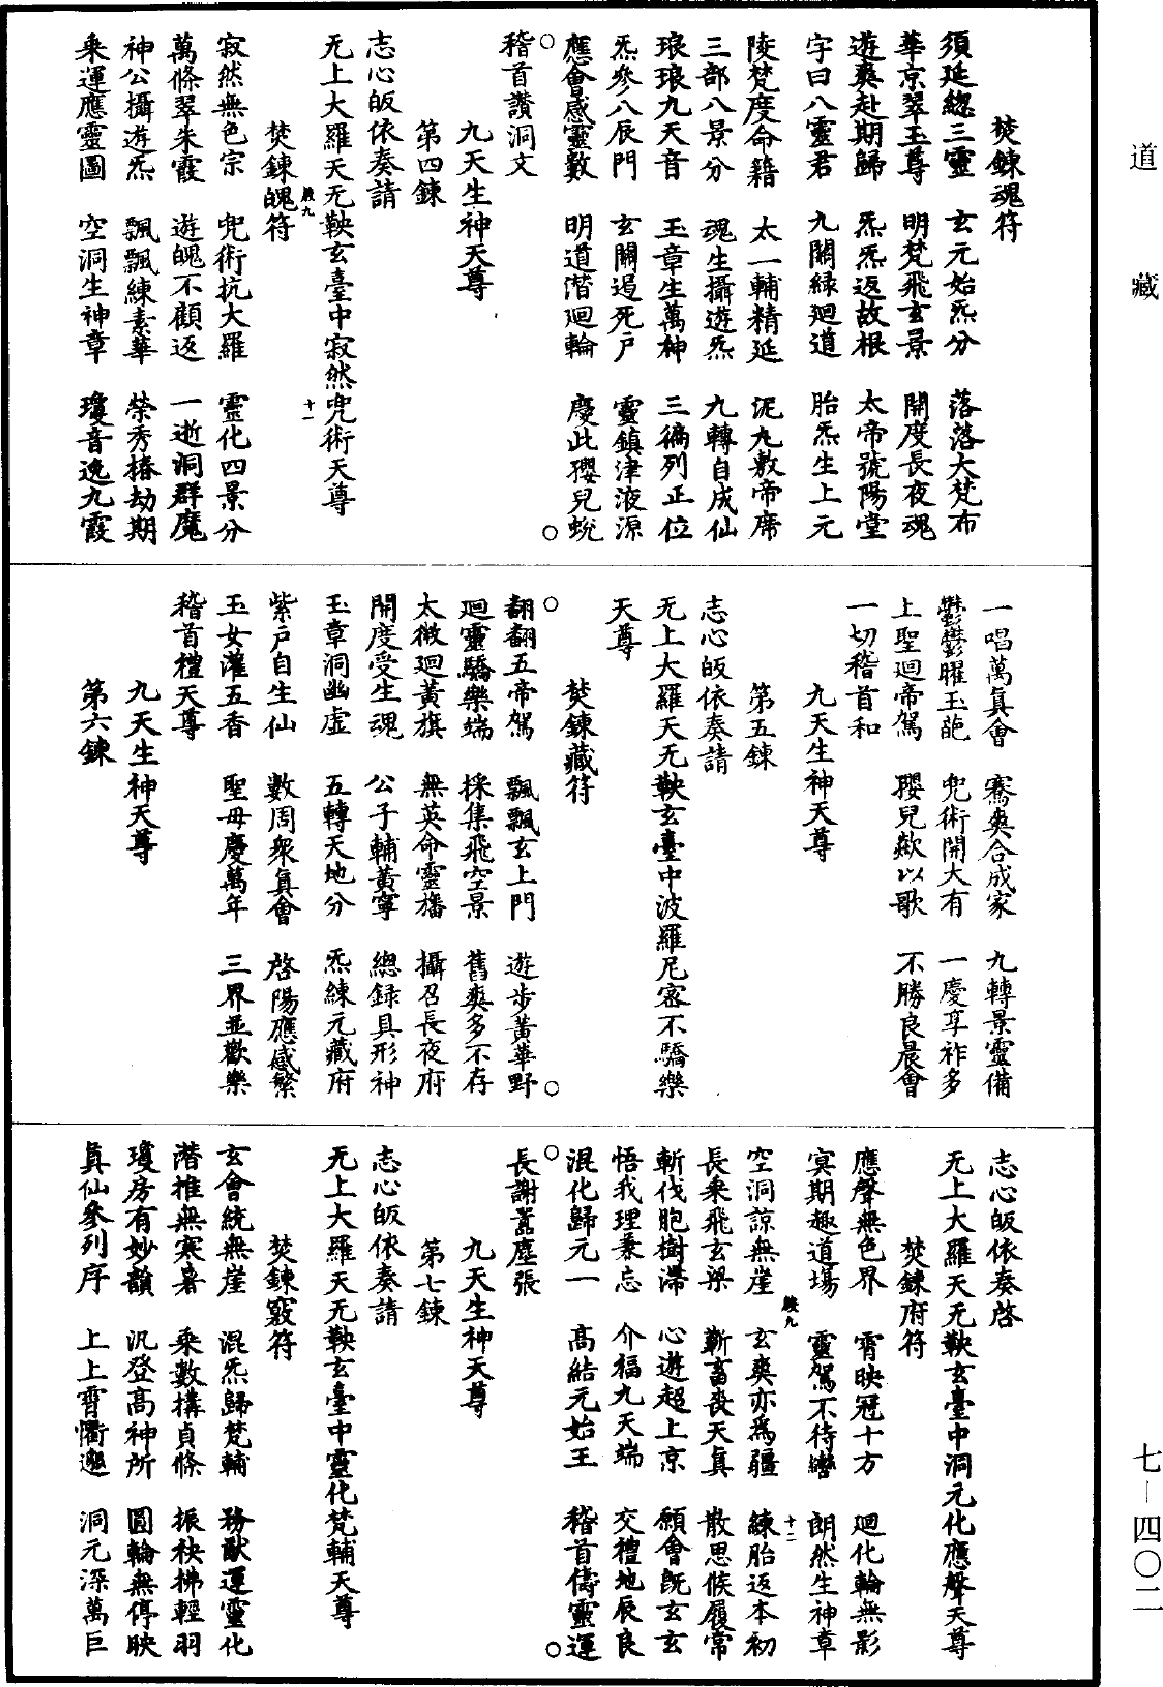 道藏
七—四〇二
焚鍊魂符
須延總三靈　玄元始炁分　落落大梵布
華京翠玉尊　明梵飛玄景　開度長夜魂
遊爽赴期歸　炁炁返故根　太帝號陽堂
字曰八靈君　九關緑迴道　胎炁生上元
陵梵度命籍　太一輔精延　泥丸敷帝席
三部八景分　魂生攝遊炁　九轉自成仙
琅琅九天音　玉章生萬神　三徧列正位
炁參八辰門　玄關遏死戶　靈鎮津液源
應會感靈數　明道潛迴輪　慶此瓔兒蛻
○　○
稽首讚洞文
九天生神天尊
第四鍊
志心皈依奏請
无上大羅天无鞅玄臺中寂然兜術天尊
焚鍊魄符
九　十一
寂然無色宗　兜術抗大羅　靈化四景分
萬條翠朱霞　遊魄不顧返　一逝洞群魔
神公攝遊炁　飄飄練素華　榮秀椿劫期
乘運應靈圖　空洞生神章　瓊音逸九霞
一唱萬真會　騫爽合成家　九轉景靈備
鬱鬱曜玉葩　兜術開大有　一慶享祚多
上聖迴帝駕　瓔兒歘以歌　不勝良晨會
一切稽首和
九天生神天尊
第五鍊
志心皈依奏請
无上大羅天无鞅玄臺中波羅尼密不驕樂
天尊
焚鍊藏符
○　○
翻翻五帝駕　飄飄玄上門　遊步黃華野
迴靈驕樂端　採集飛空景　舊爽多不存
太微迴黃旗　無英命靈旛　攝召長夜府
開度受生魂　公子輔黃寧　總録具形神
玉章洞幽虛　五轉天地分　炁練元藏府
紫戶自生仙　數周衆真會　啓陽應感繁
玉女灌五香　聖母慶萬年　三界並歡樂
稽首禮天尊
九天生神天尊
第六鍊
志心皈依奏啓
无上大羅天无鞅玄臺中洞元化應聲天尊
焚鍊府符
應聲無色界　霄映冠十方　迴化輪無影
冥期趣道場　靈駕不待轡　朗然生神章
九　十二
空洞諒無崖　玄爽亦爲疆　練胎返本初
長乘飛玄梁　蘄畜喪天真　散思候履常
斬伐胞樹滯　心遊超上京　願會既玄玄
悟我理兼忘　介福九天端　交禮地辰良
混化歸元一　高結元始王　稽首儔靈運
○　○
長謝囂塵張
九天生神天尊
第七鍊
志心皈依奏請
无上大羅天无鞅玄臺中靈化梵輔天尊
焚鍊竅符
玄會統無崖　混炁歸梵輔　務猷運靈化
潛推無寒暑　乘數構貞條　振袂拂輕羽
瓊房有妙韻　汎登高神所　圓輪無停映
真仙參列序　上上霄衢邈　洞元深萬巨